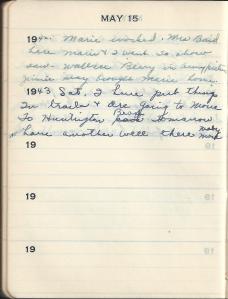 MAY 15
1942. Marie worked. Mrs Baird
here Marie & I went to show
saw Wallace Beery in
Marie home.
1943 Sat. I have put things
in trailer & are going to move
To Huntington Beach tomorrow
have another well there maby
19
19
19